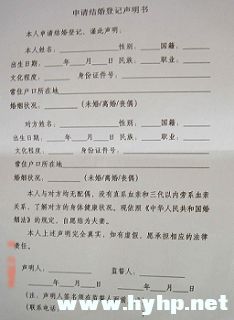 申请结婚登记声明书
本人申请结婚登记，谨此声明：
本人姓名： 性别： 国籍：
出生日期： 年 月 日 民族： 职业：
文化程度： 身份证件号：
常住户口所在地
婚姻状况： （未婚/离婚/丧偶）
对方姓名： 性别： 国籍：
出生日期： 年 月 日 民族： 职业：
文化程度： 身份证件号：
常住户口所在地
婚姻状况： （未婚/离婚/丧偶）
本人与对方均无配偶，没有直系血亲和三代以内旁系血亲
关系，了解对方的身体健康状况。现依照《中华人民共和国婚
姻法》的规定，自愿结为夫妻。
本人上述声明完全真实，如有虚假，愿承担相应的法律
责任。
声明人： 监督人：
年 月 日 年 月 日
（注：声明人签名须在监督人面前
（联系电话
www.hyhp.net